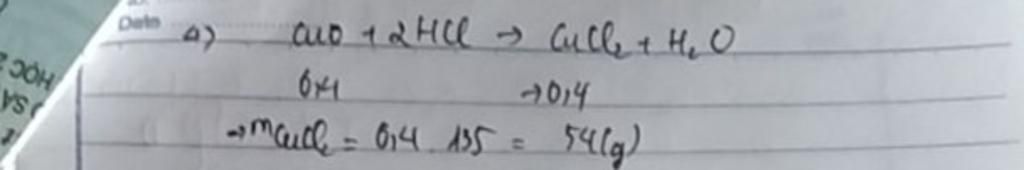 Date
a) CuO + 2HCl → CuCl₂ + H₂O
0,4 → 0,4
→ mCuCl₂ = 0,4 . 135 = 54(g)
HỌC